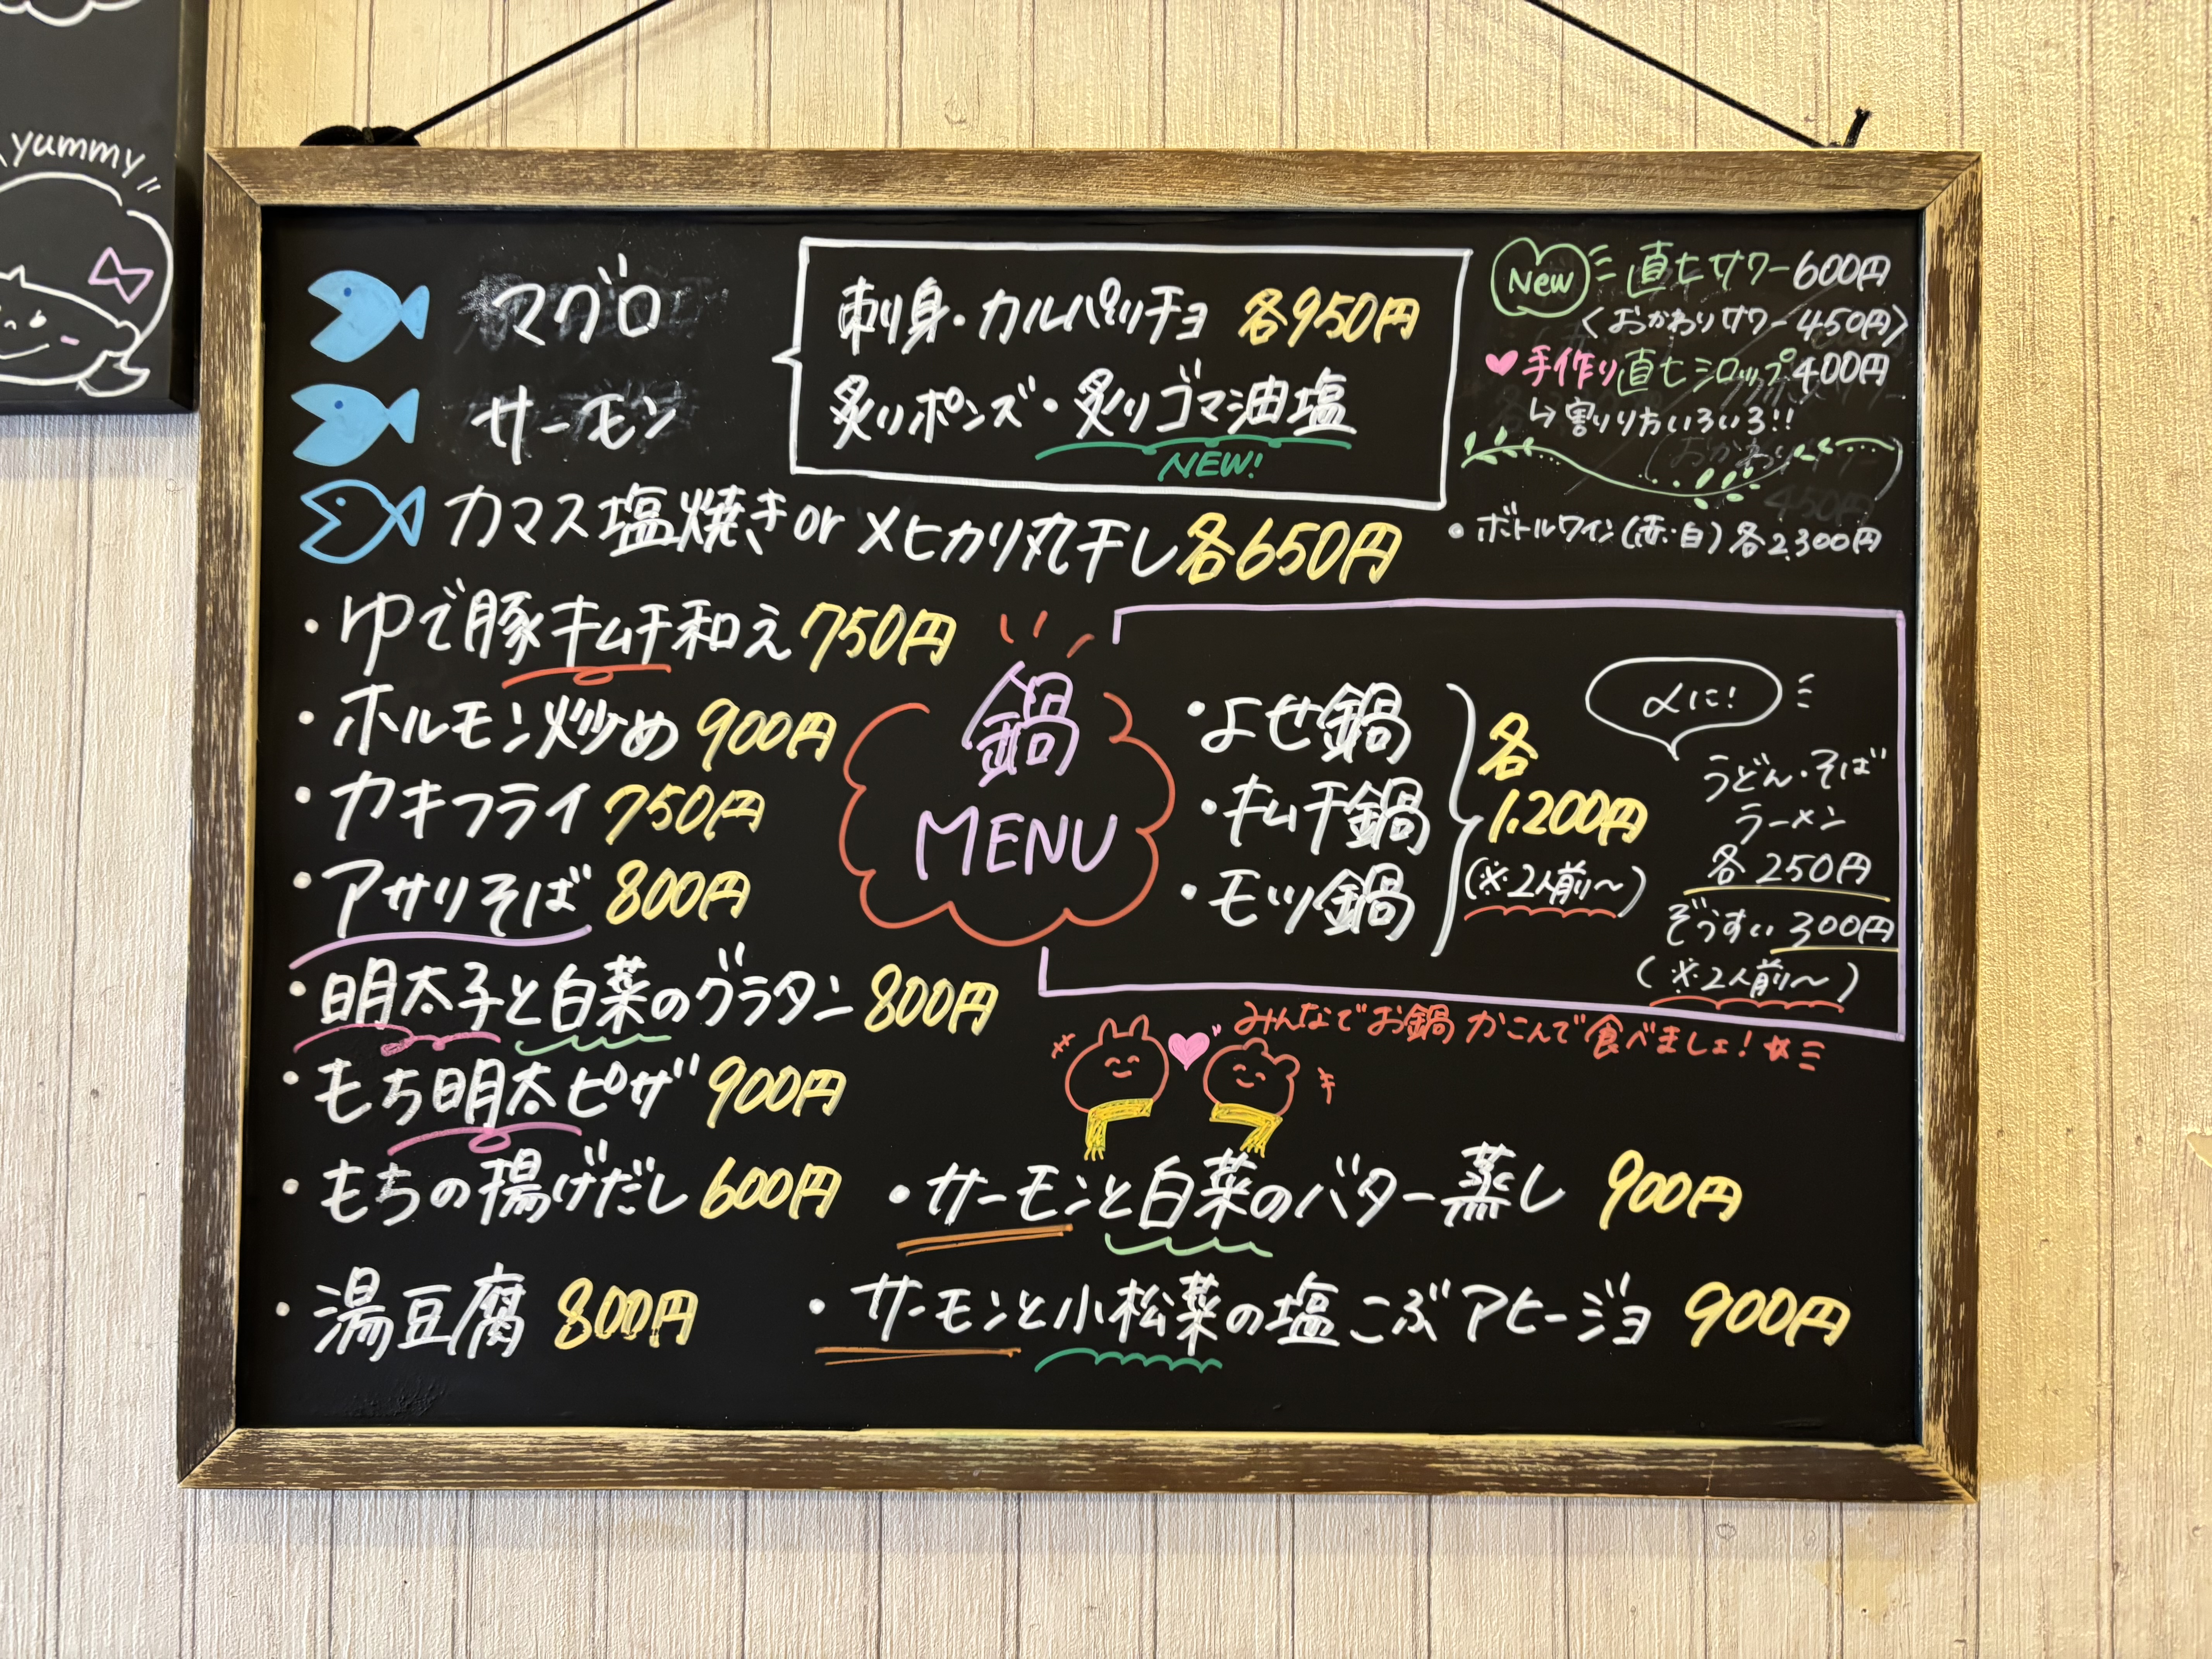 yummy
マグロ
サーモン
刺身・カルパッチョ 各950円
炙りポンズ・炙りゴマ油塩
NEW!
カマス塩焼き or メヒカリ丸干し 各650円
New 直七サワー 600円
〈おかわりサワー 450円〉
手作り直七シロップ 400円
↳割り方いろいろ!!
・ボトルワイン(赤・白)各2,300円
・ゆで豚キムチ和え 750円
・ホルモン炒め 900円
・カキフライ 750円
・アサリそば 800円
・明太子と白菜のグラタン 800円
・もち明太ピザ 900円
・もちの揚げだし 600円
・湯豆腐 800円
鍋
MENU
・よせ鍋
・キムチ鍋
・モツ鍋
各
1,200円
(※2人前〜)
〆に!
うどん・そば
ラーメン
各250円
ぞうすい 300円
(※2人前〜)
みんなでお鍋かこんで食べましょ!
・サーモンと白菜のバター蒸し 900円
・サーモンと小松菜の塩こぶアヒージョ 900円